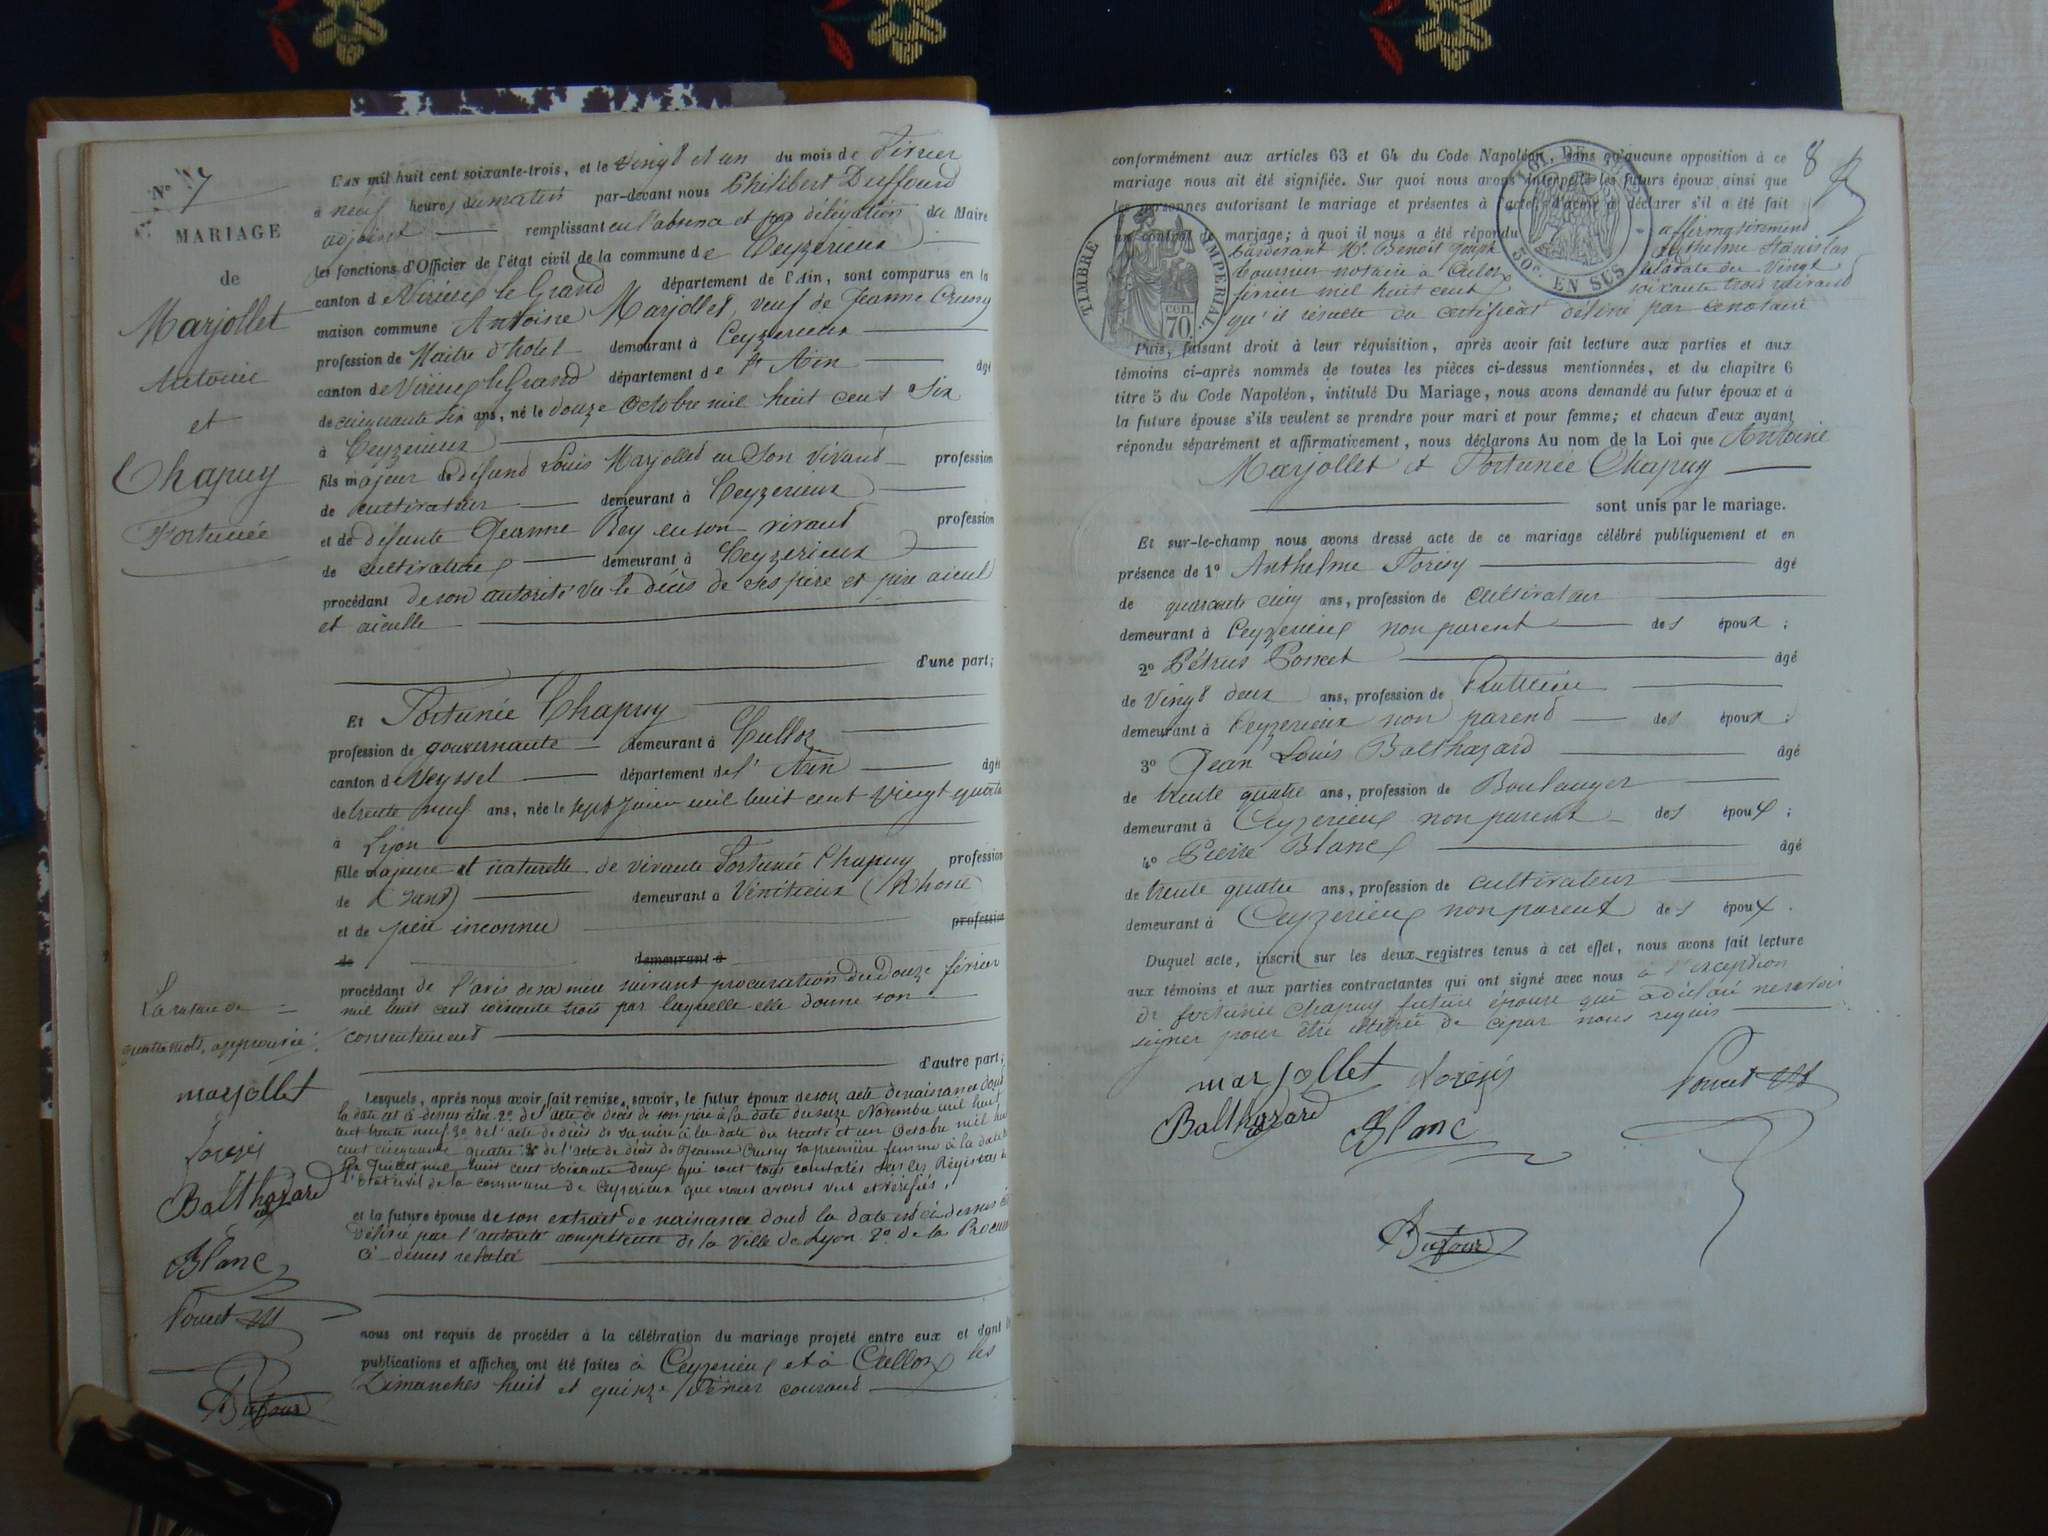 N° 7
MARIAGE
de
Marjollet
Antoine
et
Chapuy
Fortunée
L'AN mil huit cent soixante-trois, et le vingt et un du mois de février
à neuf heures du matin par-devant nous Philibert Duffourd
adjoint remplissant en l'absence et par délégation du Maire
les fonctions d'Officier de l'état civil de la commune de Ceyzerieux
canton de Virieux le Grand département de l'Ain, sont comparus en la
maison commune Antoine Marjollet, veuf de Jeanne Crussy
profession de Maitre d'hotel demeurant à Ceyzerieux
canton de Virieux le Grand département de l'Ain âgé
de cinquante six ans, né le douze Octobre mil huit cent Six
à Ceyzerieux
fils majeur de défund Louis Marjollet en Son vivant profession
de cultivateur demeurant à Ceyzerieux
et de défunte Jeanne Rey en son vivant profession
de cultivatrice demeurant à Ceyzerieux
procédant de son autorité vu le décès de ses père et père aieul
et aieulle
d'une part;
Et Fortunée Chapuy
profession de gouvernante demeurant à Culloz
canton de Seyssel département de l'Ain âgée
de trente neuf ans, née le sept Janvier mil huit cent vingt quatre
à Lyon
fille majeure et naturelle de vivante Fortunée Chapuy profession
de (sans) demeurant à Vénitieux (Rhone)
et de père inconnu profession
de demeurant à
procédant de l'avis de sa mère suivant procuration du douze février
mil huit cent soixante trois par laquelle elle donne son
consentement
d'autre part;
La rature de
quatre mots, approuvée
marjollet
Balthazard
Blanc
Poncet
Dufour
Lesquels, après nous avoir fait remise, savoir, le futur époux de son acte de naissance dont
la date est ci-dessus citée 2° de l'acte de décès de son père à la date du seize Novembre mil huit
cent trente neuf 3° de l'acte de décès de sa mère à la date du trente et un Octobre mil huit
cent cinquante quatre 4° de l'acte de décès de Jeanne Crussy sa première femme à la date
Juillet mil huit cent soixante deux qui sont tous constatés sur les Régistres de
l'état civil de la commune de Ceyzerieux que nous avons vus et vérifiés,
et la future épouse de son extrait de naissance dont la date est ci dessus
délivré par l'autorité compétente de la ville de Lyon 2° de la
ci-dessus relatée
nous ont requis de procéder à la célébration du mariage projeté entre eux et dont
publications et affiches ont été faites à Ceyzerieux et à Culloz les
Dimanches huit et quinze février courant
8
conformément aux articles 63 et 64 du Code Napoléon, sans qu'aucune opposition à ce
mariage nous ait été signifiée. Sur quoi nous avons interpellé les futurs époux ainsi que
les personnes autorisant le mariage et présentes à l'acte, d'avoir à déclarer s'il a été fait
un contrat de mariage; à quoi il nous a été répondu affirmativement
pardevant Me. Benoit Joseph Anthelme Stanislas
notaire à Culoz à la date du Vingt
février mil huit cent soixante trois suivant
qu'il résulte du certificat délivré par ce notaire
TIMBRE IMPÉRIAL
cen. 70
50c. EN SUS
Puis, faisant droit à leur réquisition, après avoir fait lecture aux parties et aux
témoins ci-après nommés de toutes les pièces ci-dessus mentionnées, et du chapitre 6
titre 5 du Code Napoléon, intitulé Du Mariage, nous avons demandé au futur époux et à
la future épouse s'ils veulent se prendre pour mari et pour femme; et chacun d'eux ayant
répondu séparément et affirmativement, nous déclarons Au nom de la Loi que Antoine
Marjollet et Fortunée Chapuy
sont unis par le mariage.
Et sur-le-champ nous avons dressé acte de ce mariage célébré publiquement et en
présence de 1° Anthelme âgé
de quarante cinq ans, profession de cultivateur
demeurant à Ceyzerieux non parent des époux;
2° Pétrus Poncet âgé
de vingt deux ans, profession de
demeurant à Ceyzerieux non parend des époux;
3° Jean Louis Balthazard âgé
de trente quatre ans, profession de Boulanger
demeurant à Ceyzerieux non parent des époux;
4° Pierre Blanc âgé
de trente quatre ans, profession de cultivateur
demeurant à Ceyzerieux non parent des époux.
Duquel acte, inscrit sur les deux registres tenus à cet effet, nous avons fait lecture
aux témoins et aux parties contractantes qui ont signé avec nous à l'exception
de fortunée Chapuy future épouse qui a déclaré ne savoir
signer pour être de ce par nous requis
marjollet
Poncet
Balthazard
Blanc
Dufour